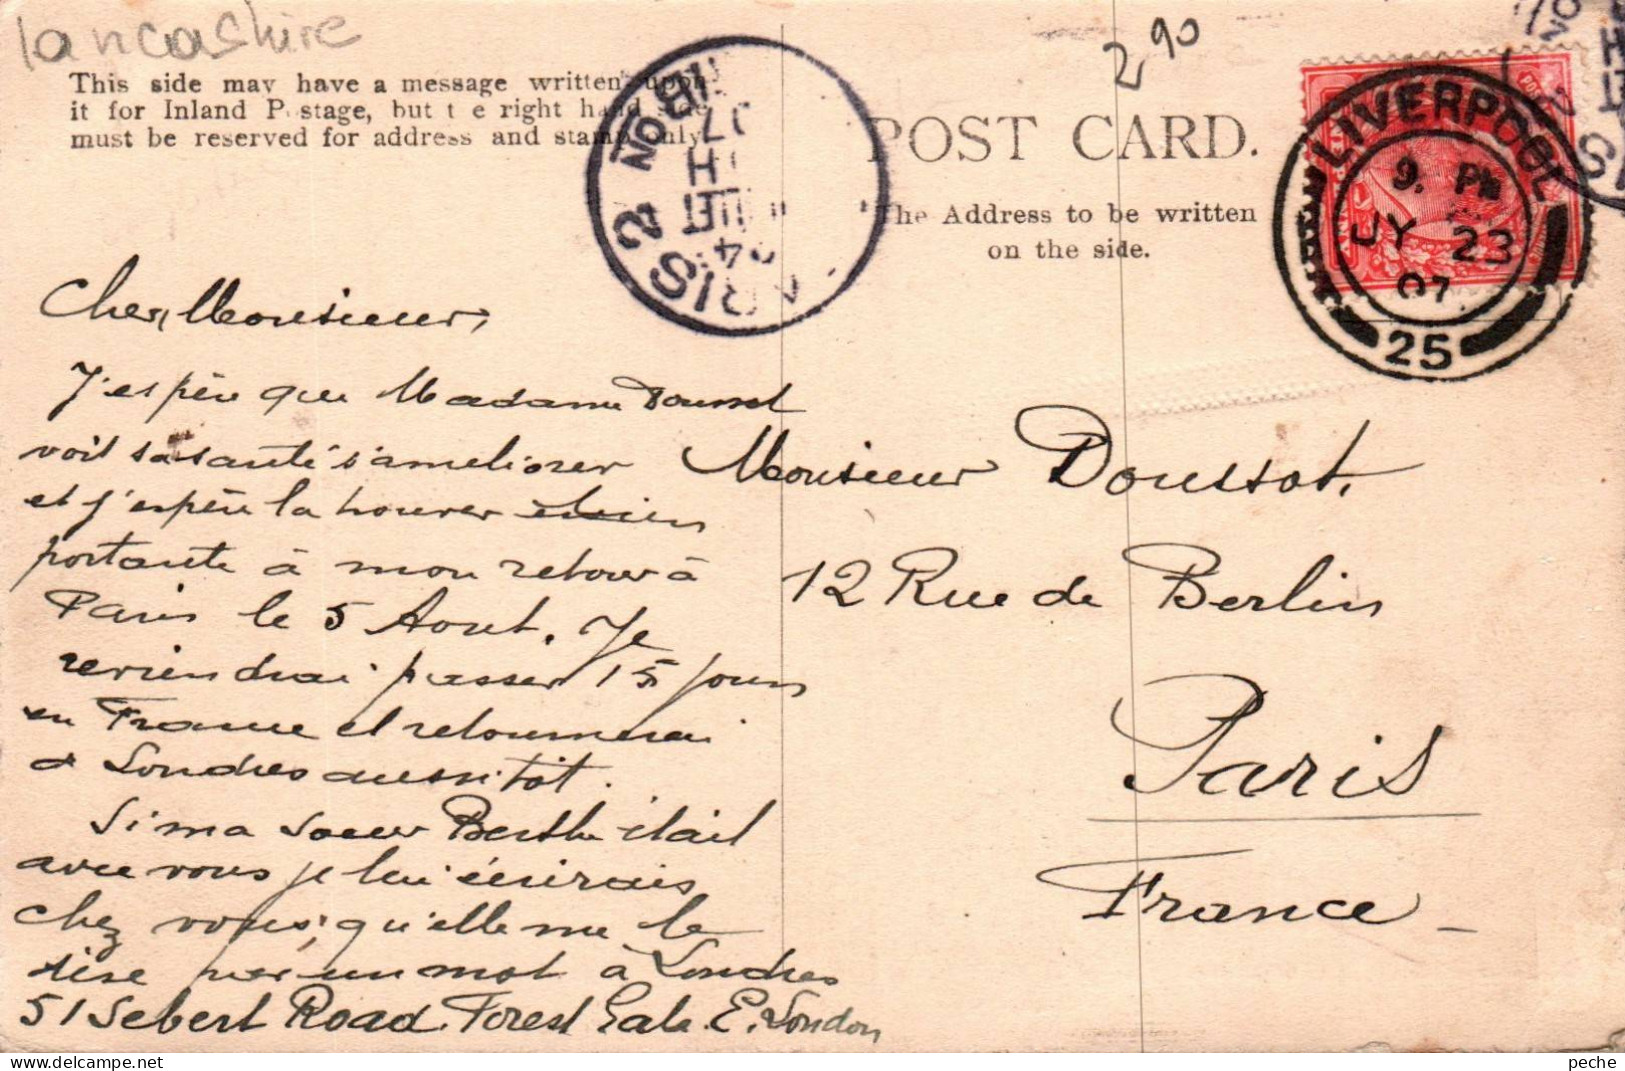 lancashire
This side may have a message written upon
it for Inland Postage, but the right hand side
must be reserved for address and stamp only.
POST CARD.
The Address to be written
on the side.
2 90
LIVERPOOL
9. PM
JY 23
07
25
PARIS 2
DISTRIBUTION
Cher Monsieur,
J'espère que Madame Doussot
voit sa santé s'améliorer
et j'espère la trouver bien
portante à mon retour à
Paris le 5 Aout. Je
reviendrai passer 15 jours
en France et retournerai
à Londres aussitôt.
Si ma soeur Berthe était
avec vous je lui écrirais
chez vous, qu'elle me le
dise par un mot à Londres
51 Sebert Road. Forest Gate. E. London
Monsieur Doussot.
12 Rue de Berlin
Paris
France
peche